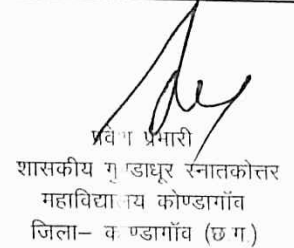 प्रवेश प्रभारी
शासकीय गुण्डाधूर स्नातकोत्तर
महाविद्यालय कोण्डागॉव
जिला– कोण्डागॉव (छ.ग.)